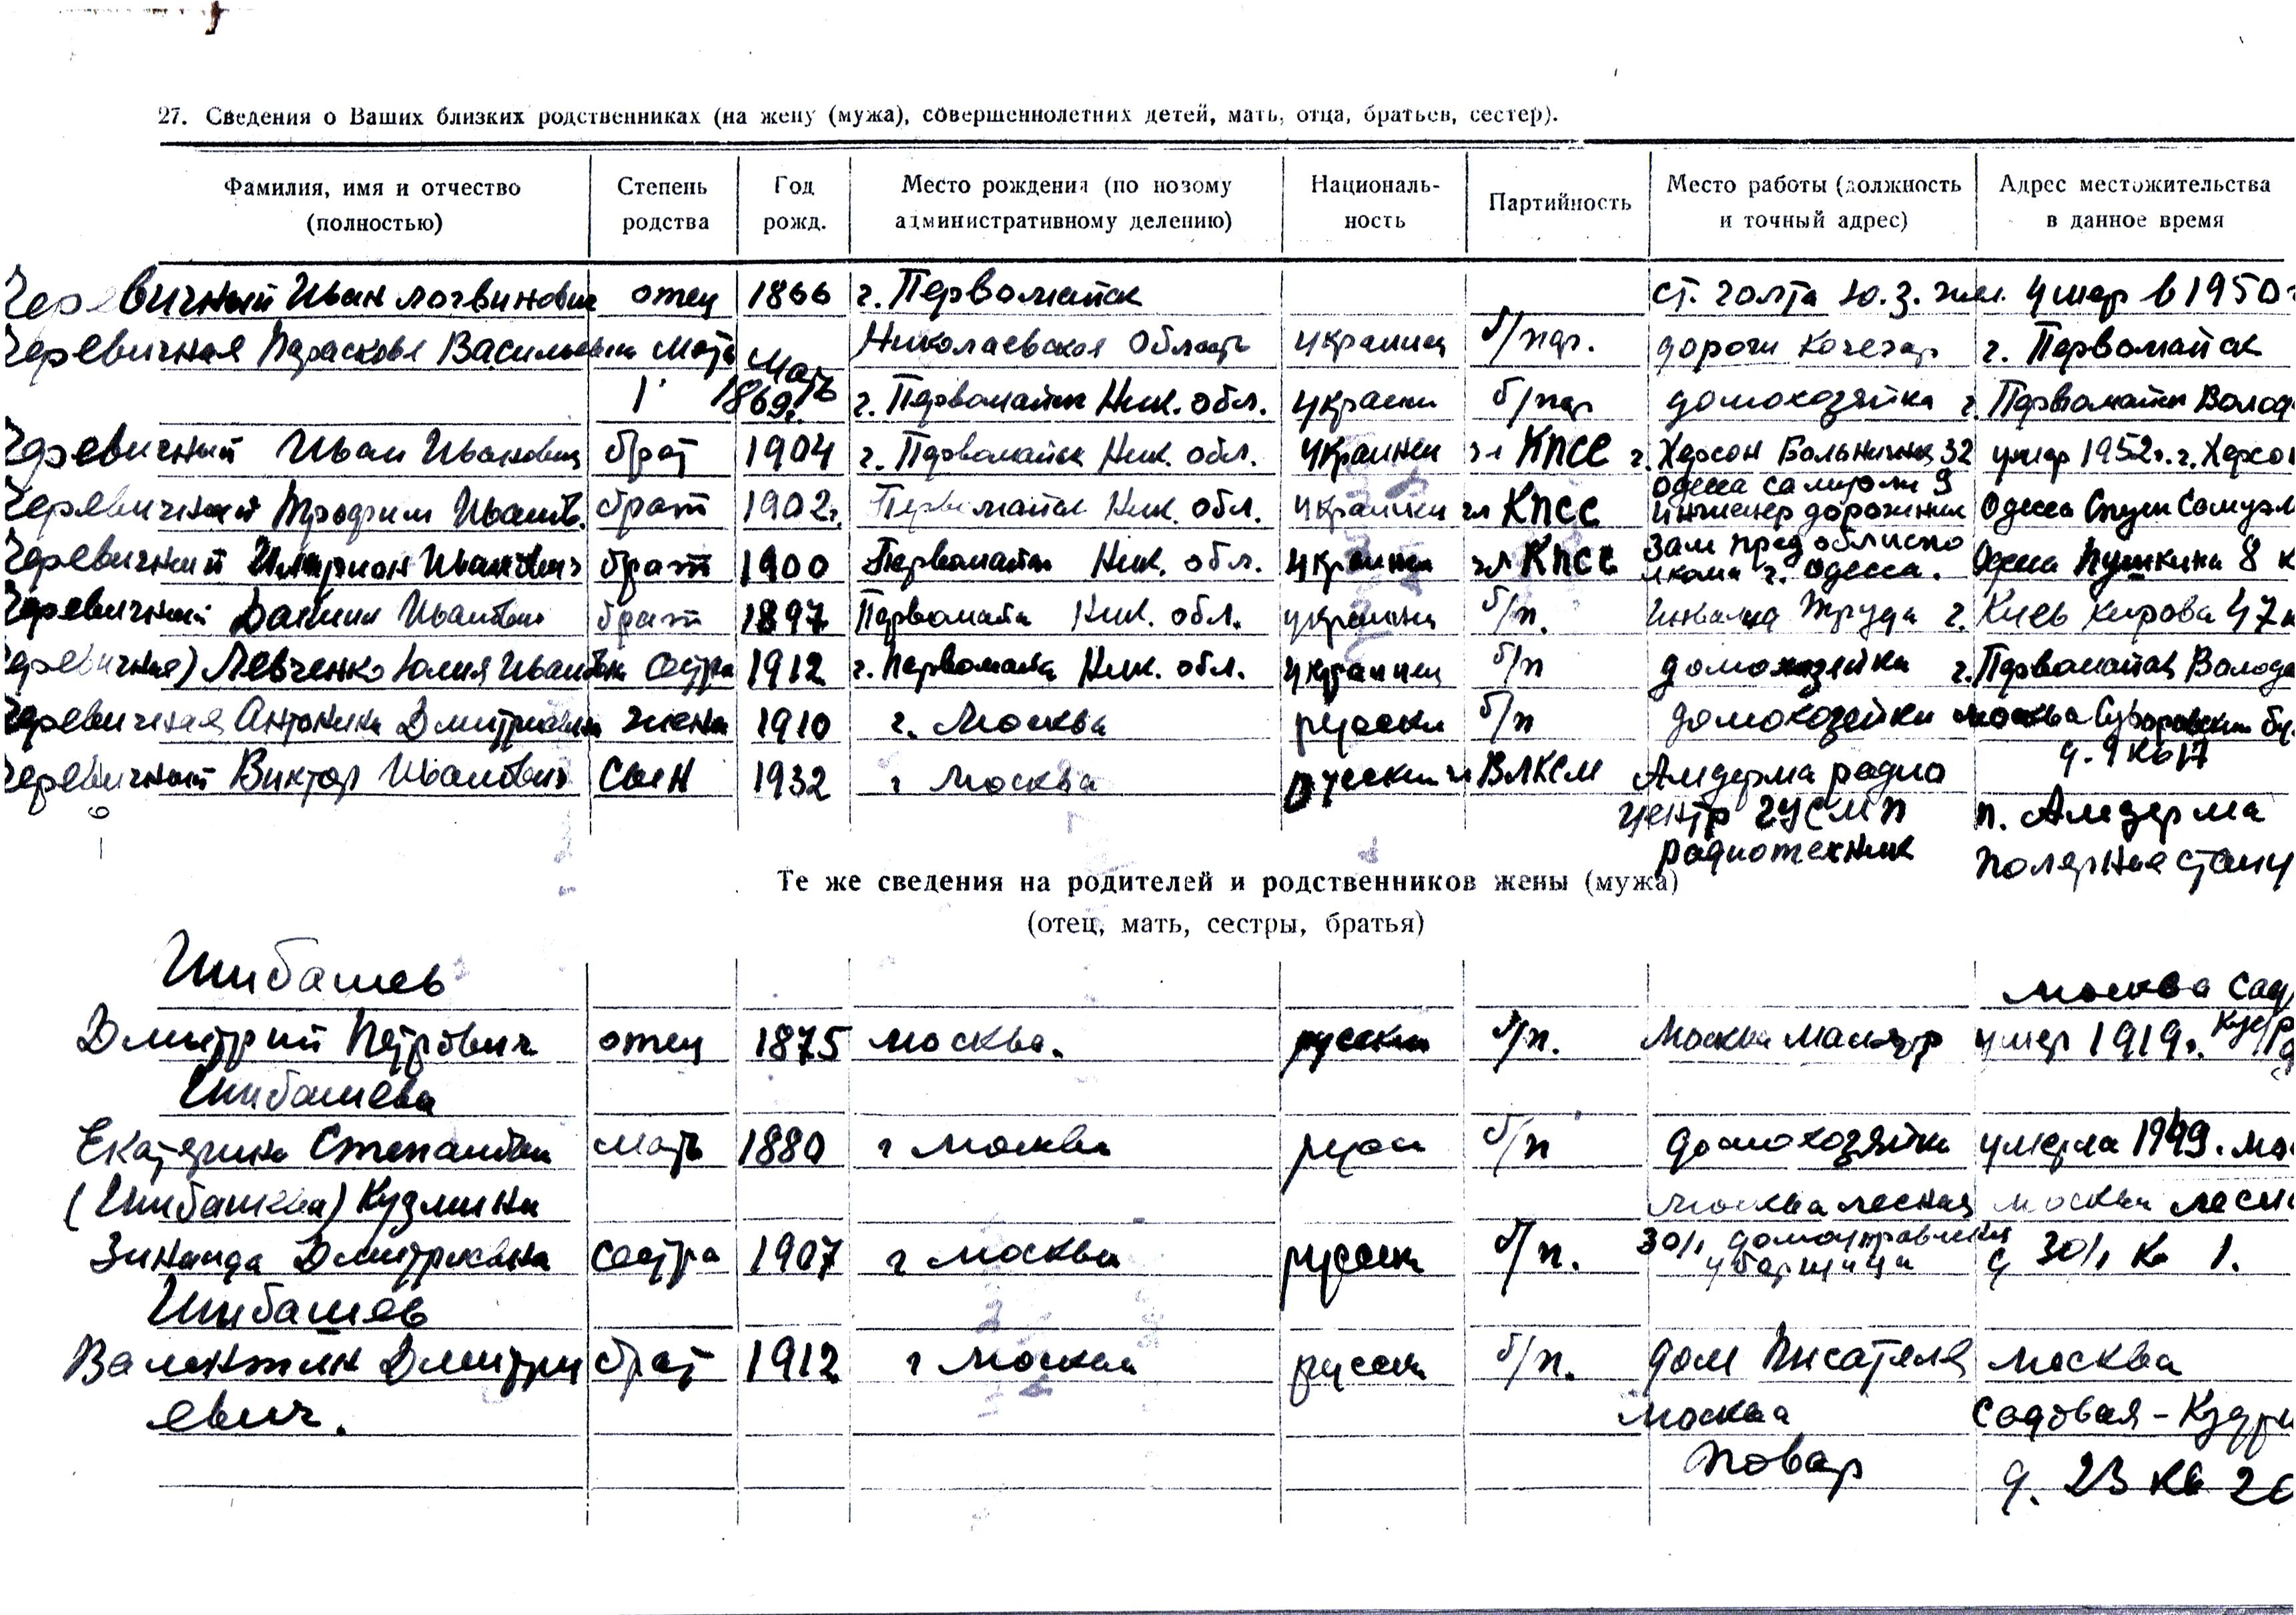 27. Сведения о Ваших близких родственниках (на жену (мужа), совершеннолетних детей, мать, отца, братьев, сестер).
Фамилия, имя и отчество (полностью) Степень родства Год рожд. Место рождения (по новому административному делению) Националь-ность Партийность Место работы (должность и точный адрес) Адрес местожительства в данное время
Черевичный Иван Логвинович отец 1866 г. Первомайск ст. Голта Ю.З. жел. умер в 1950
Черевичная Парасковя Васильевна мать Николаевская область украинец б/пар. дороги кочегар г. Первомайск
мать
1869г. г. Первомайск Ник. обл. украин б/пар домохозяйка г. Первомайск Волод
Черевичный Иван Иванович брат 1904 г. Первомайск Ник. обл. украинец чл КПСС г. Херсон Больничная 32 умер 1952г. г. Херсон
Одесса
Черевичный Трофим Иванов. брат 1902г. Первомайск Ник. обл. украинец чл КПСС инженер дорожник Одесса
Зам пред облиспо
Черевичный Илларион Иванович брат 1900 Первомайск Ник. обл. украинец чл КПСС лкома г. Одесса. Одесса Пушкина 8 к
Черевичный Данил Иванович брат 1897 Первомайск Ник. обл. украинец б/п. Инвалид труда г. Киев Кирова 47
Черевичная) Левченко Юлия Ивановна сестра 1912 г. Первомайск Ник. обл. украинец б/п домохозяйка г. Первомайск Волода
Черевичная Антонина Дмитриевна жена 1910 г. Москва русская б/п домохозяйка Москва Суворовский бу
д. 9 кв 17
Черевичный Виктор Иванович сын 1932 г Москва русский чл ВЛКСМ Амдерма радио
центр ГУСМП п. Амдерма
радиотехник полярная станц
Те же сведения на родителей и родственников жены (мужа)
(отец, мать, сестры, братья)
Шибашев Москва Сад
Дмитрий Петрович отец 1875 Москва. русский б/п. Москва маляр умер 1919г.
Шибашева
Екатерина Степановна мать 1880 г Москва русск б/п домохозяйка умерла 1949. Мо
(Шибашева) Кузмина Москва Лесная Москва Лесн
Зинаида Дмитриевна сестра 1907 г Москва русская б/п. 30/1 домоуправление уборщица д 30/1 кв 1.
Шибашев
Валентин Дмитри брат 1912 г Москва русский б/п. дом Писателя Москва
евич. Москва Садовая-Кудри
повар д. 23 кв 26